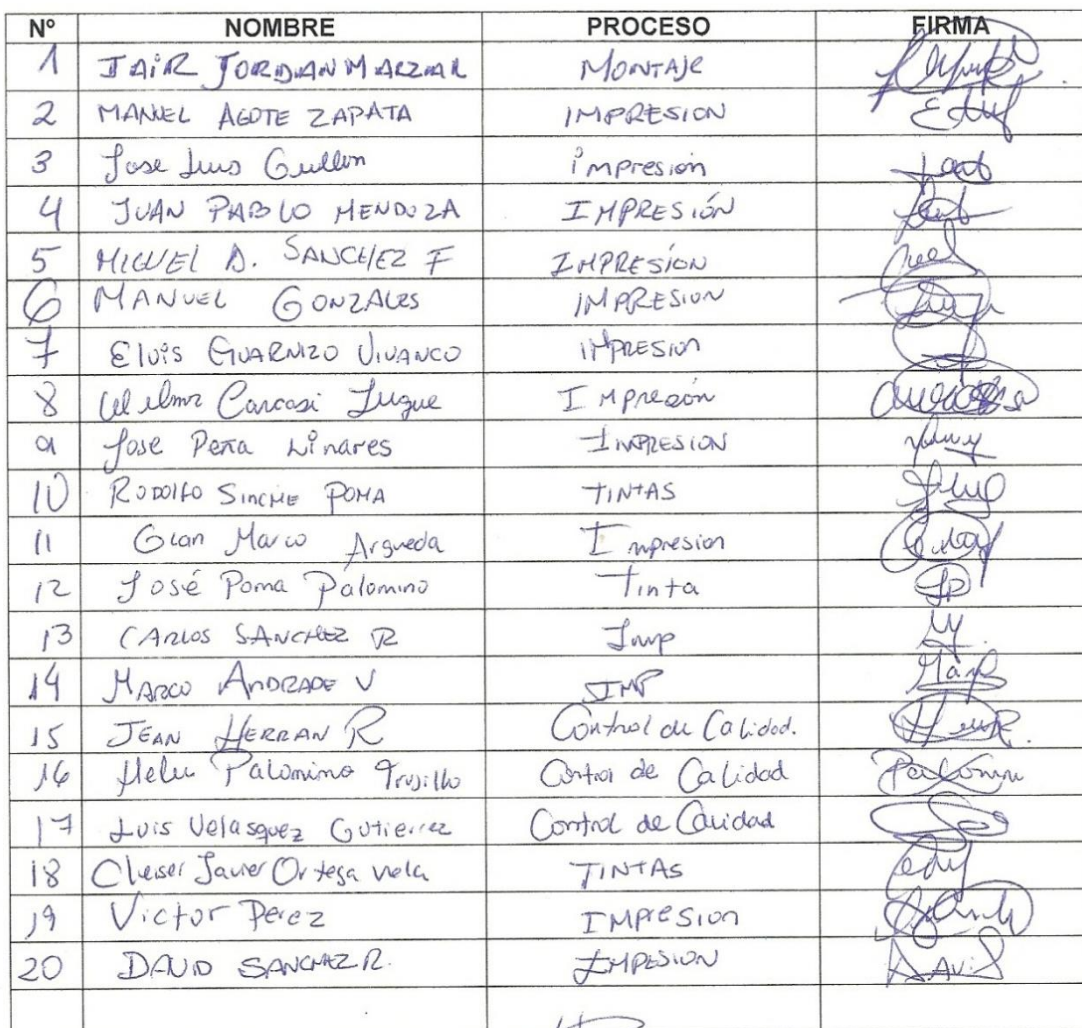 Nº NOMBRE PROCESO FIRMA
1 JAIR JORDAN MARZIAL MONTAJE
2 MANUEL AGOTE ZAPATA IMPRESION
3 Jose Luis Gullon impresión
4 JUAN PABLO MENDOZA IMPRESIÓN
5 MIGUEL A. SANCHEZ F IMPRESÍON
6 MANUEL GONZALES IMPRESION
7 Elvis GUARNIZO VIVANCO IMPRESION
8 Wilmr Carcasi Luque Impresión
9 Jose Peña Linares IMPRESION
10 RODOLFO SINCHE POMA TINTAS
11 Gian Marco Argueda Impresion
12 José Poma Palomino Tinta
13 CARLOS SANCHEZ R Imp
14 MARCO ANDRADE V IMP
15 JEAN HERRAN R Control de Calidad.
16 Palomino Trujillo Control de Calidad Palomin
17 Luis Velasquez Gutierrez Control de Calidad
18 Cleiser Javier Ortega vela TINTAS
19 Victor Perez IMPresion
20 DAVID SANCHEZ R. IMPRESION DAVID